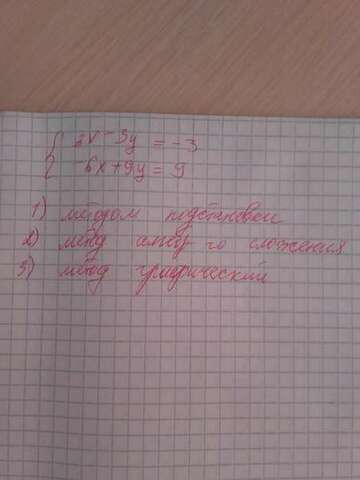 2x - 3y = -3
-6x + 9y = 9
1) методом подстановки
2) метод алгебр-го сложения
3) метод графический